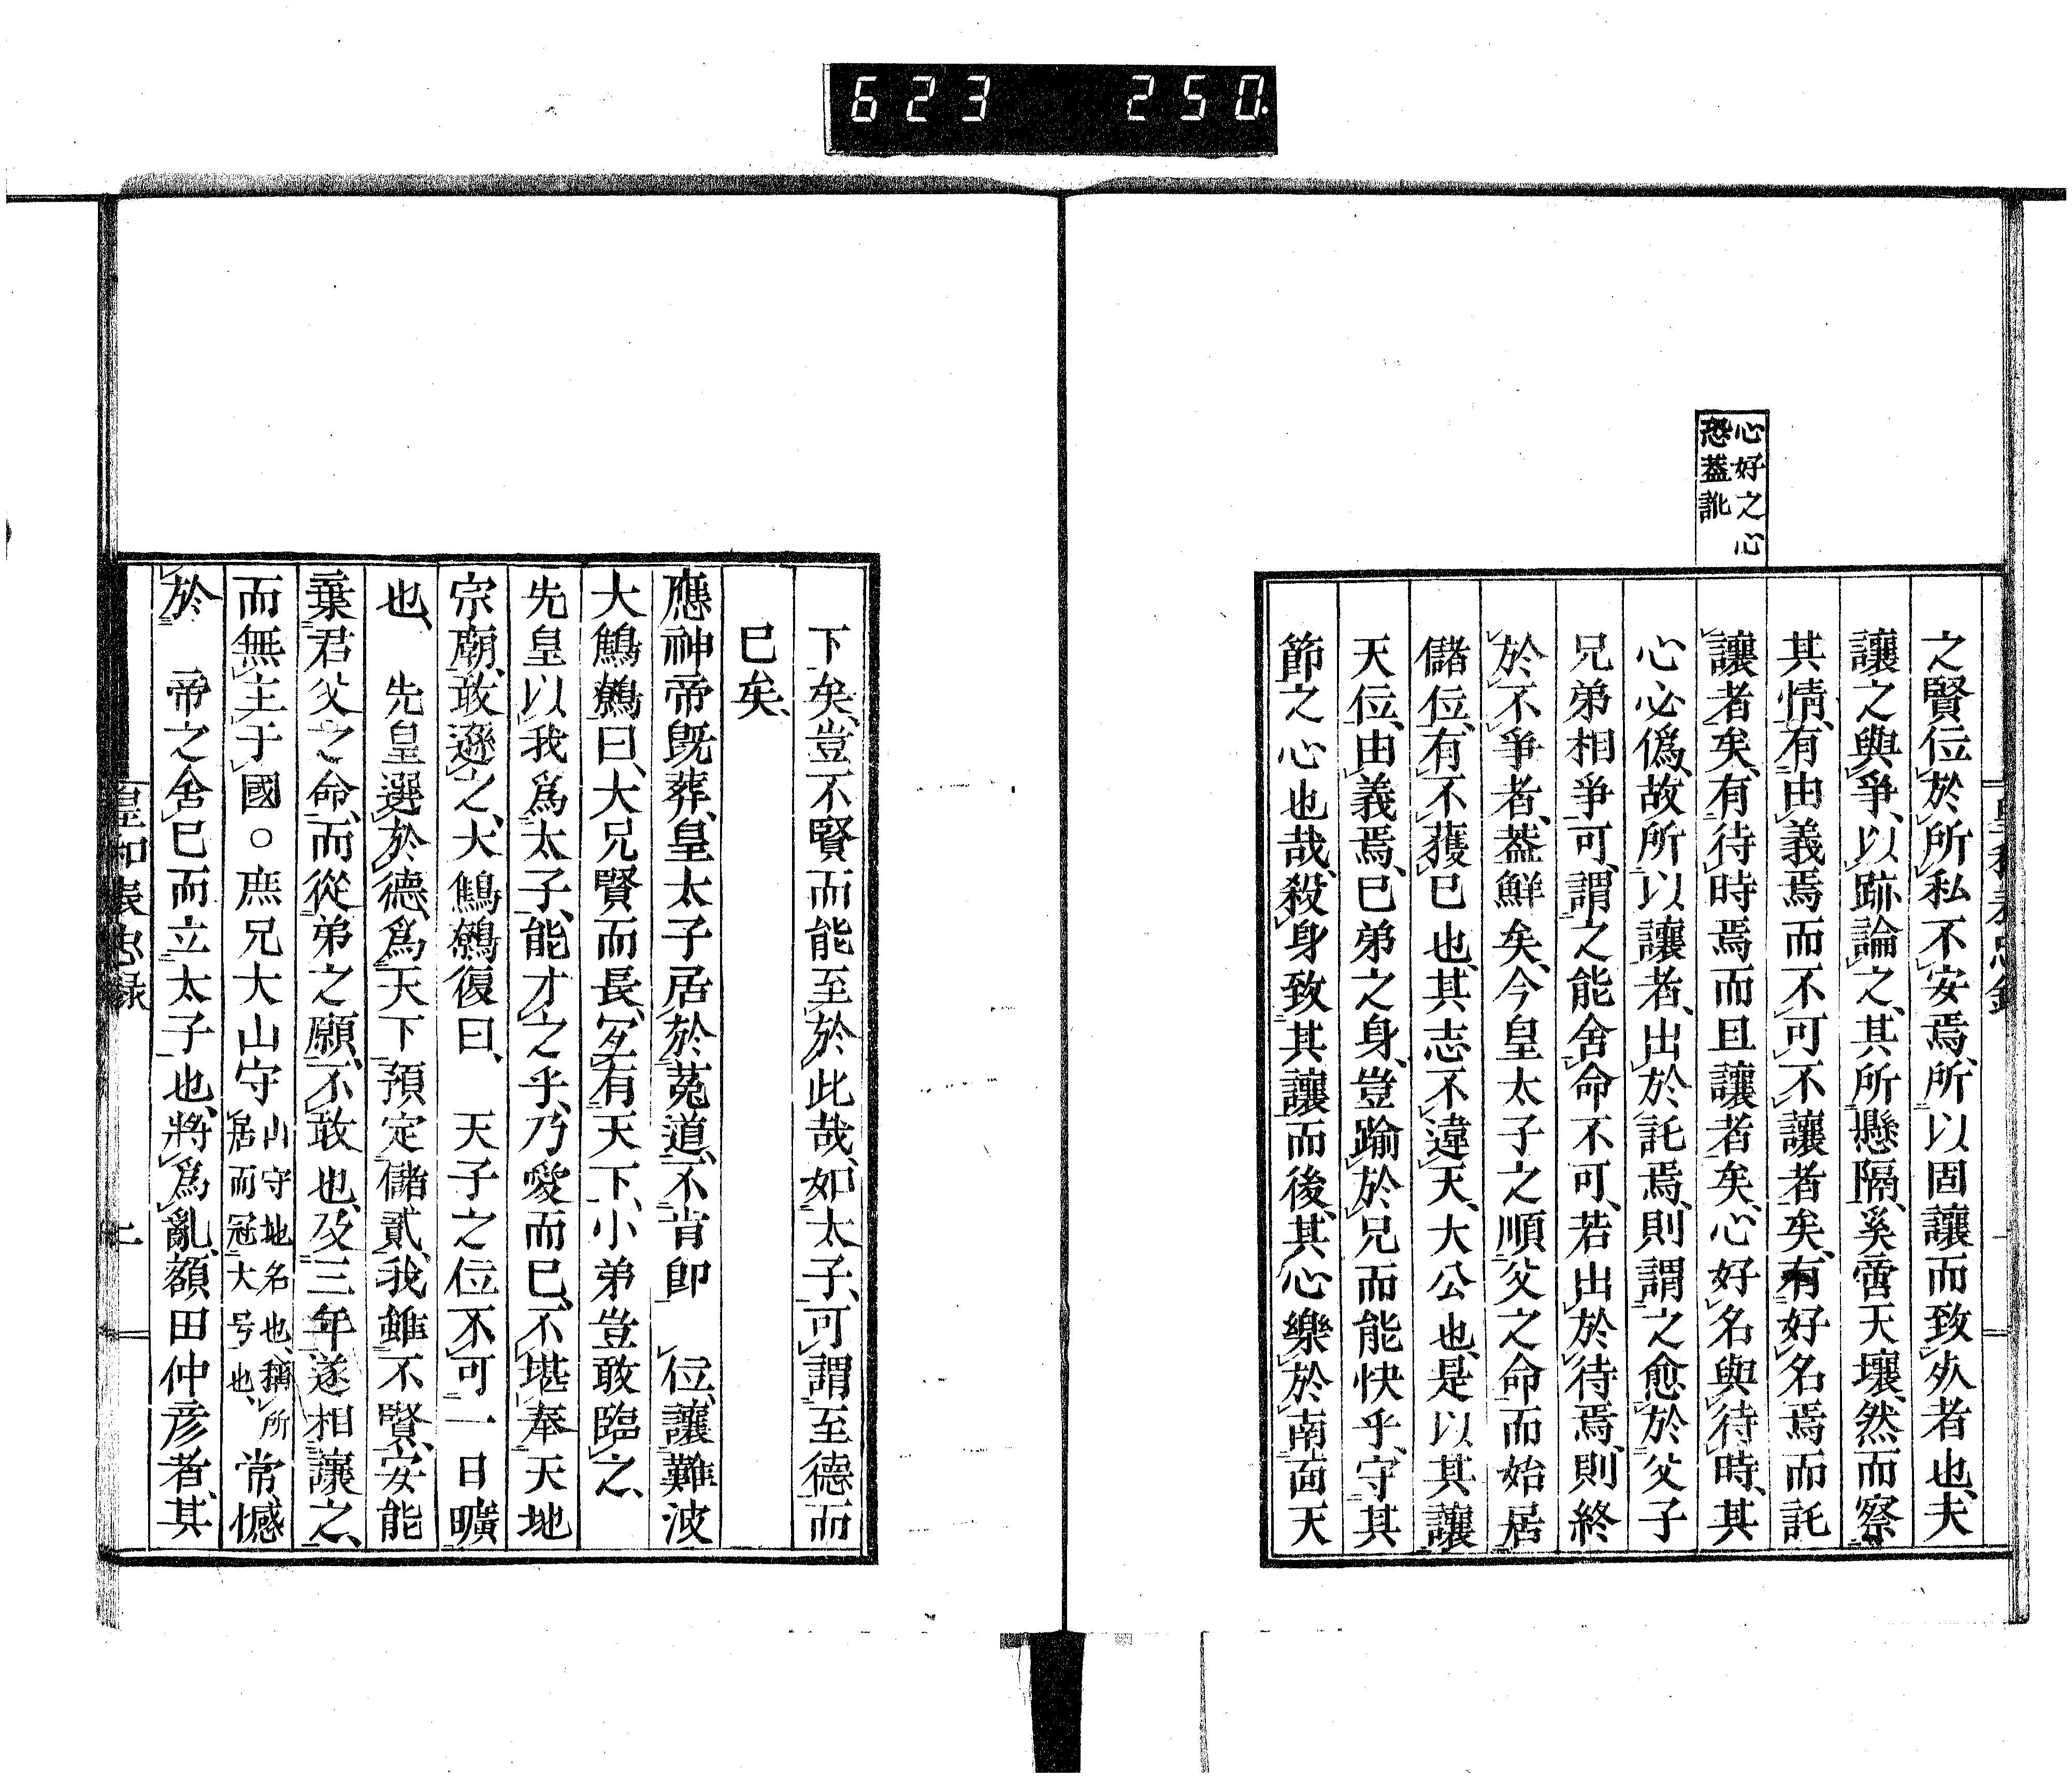 623 250.
心好之心
恐蓋訛
之賢位於所私不安焉、所以固讓而致夾者也、夫
讓之與爭、以跡論之、其所懸隔、奚啻天壤、然而察
其情、有由義焉而不可不讓者矣、有好名焉而託
讓者矣、有待時焉而且讓者矣、心好名與待時、其
心必僞、故所以讓者、出於託焉、則謂之愈於父子
兄弟相爭可、謂之能舍命不可、若出於待焉、則終
於不爭者、蓋鮮矣、今皇太子之順父之命而始居
儲位、有不獲已也、其志不違天、大公也、是以其讓
天位、由義焉、已弟之身、豈踰於兄而能快乎、守其
節之心也哉、殺身致其讓而後、其心樂於南面天
下矣、豈不賢而能至於此哉、如太子、可謂至德而
已矣、
應神帝既葬、皇太子居於菟道、不肯卽 位、讓難波
大鷦鷯曰、大兄賢而長、宜有天下、小弟豈敢臨之、
先皇以我爲太子、能才之乎、乃愛而已、不堪奉天地
宗廟、敢遜之、大鷦鷯復曰、 天子之位不可一日曠
也、 先皇選於德、爲天下預定儲貳、我雖不賢、安能
棄君父之命、而從弟之願、不敢也、及三年遂相讓之、
而無主于國○庶兄大山守山守地名也、稱所居而冠大号也、常憾
於 帝之舍已而立太子也、將爲亂、額田仲彦者、其
皇和表忠録 上